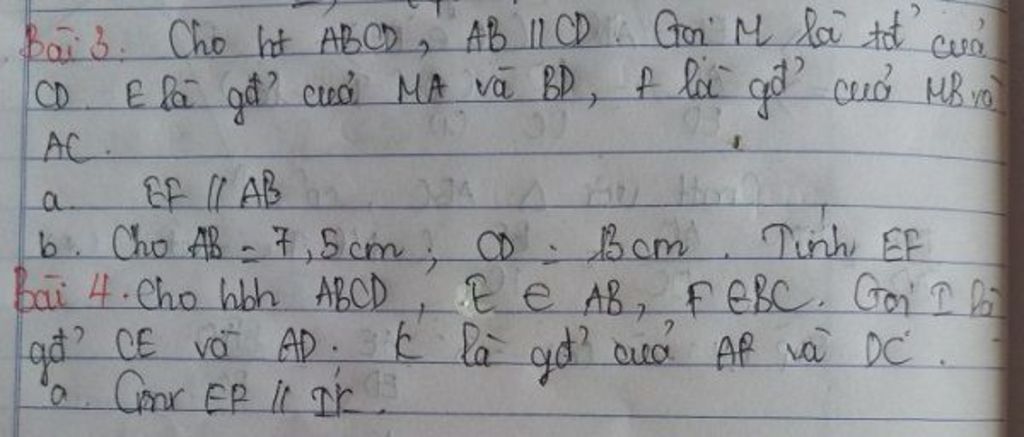 Bài 3. Cho ht ABCD, AB // CD. Gọi M là tđ' cuả
CD. E là gđ' cuả MA và BD, F là gđ' cuả MB và
AC.
a. EF // AB
b. Cho AB = 7,5cm; CD = 13cm. Tính EF
Bài 4. Cho hbh ABCD, E ∈ AB, F ∈ BC. Gọi I là
gđ' CE và AD. K là gđ' cuả AF và DC.
a. Cmr EF // IK.